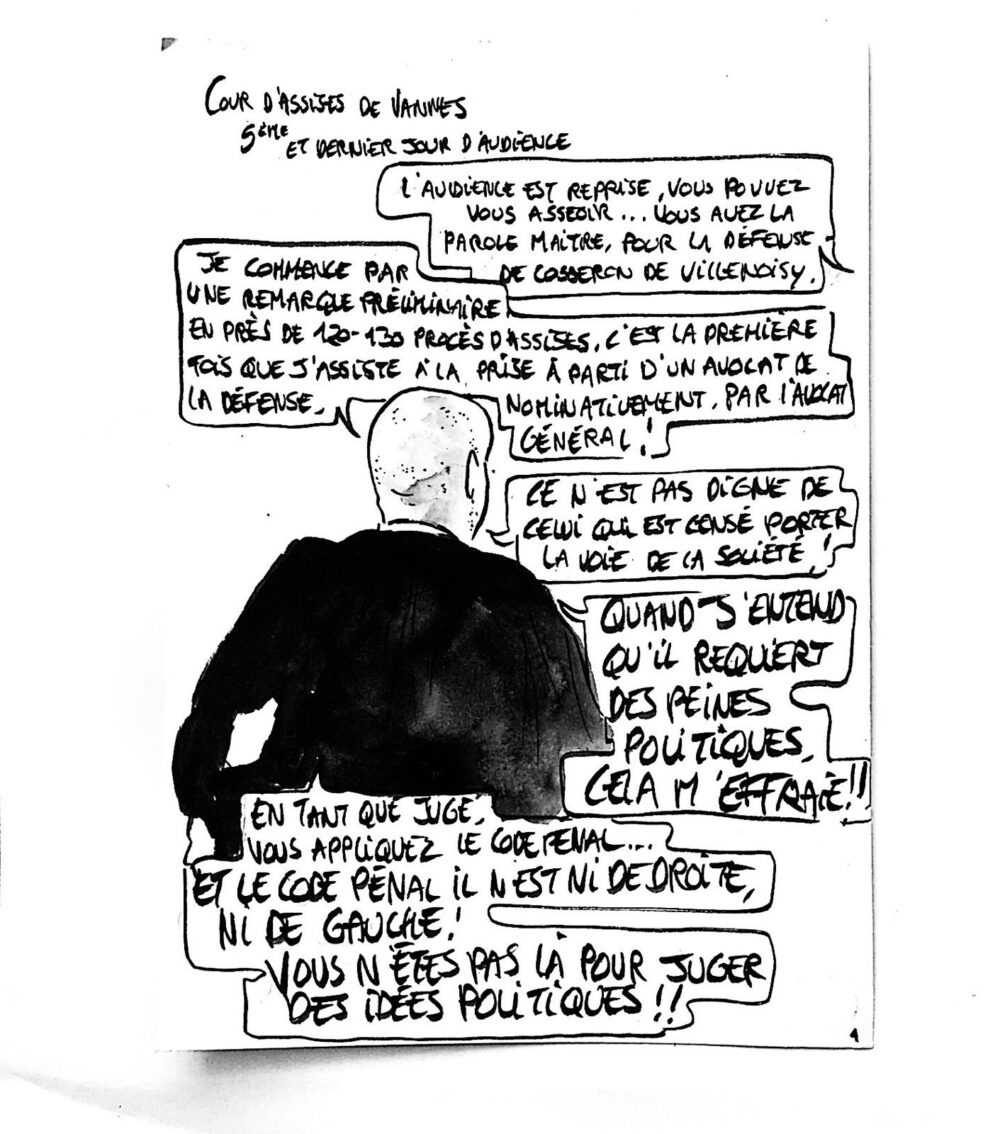 COUR D'ASSISES DE VANNES
5ÈME ET DERNIER JOUR D'AUDIENCE
L'AUDIENCE EST REPRISE, VOUS POUVEZ
VOUS ASSEOIR... VOUS AVEZ LA
PAROLE MAÎTRE, POUR LA DÉFENSE
DE COSSERON DE VILLENOISY.
JE COMMENCE PAR
UNE REMARQUE PRÉLIMINAIRE.
EN PRÈS DE 120-130 PROCÈS D'ASSISES, C'EST LA PREMIÈRE
FOIS QUE J'ASSISTE À LA PRISE À PARTI D'UN AVOCAT DE
LA DÉFENSE. NOMINATIVEMENT. PAR L'AVOCAT
GÉNÉRAL !
CE N'EST PAS DIGNE DE
CELUI QUI EST CENSÉ PORTER
LA VOIE DE LA SOCIÉTÉ !
QUAND J'ENTEND
QU'IL REQUIERT
DES PEINES
POLITIQUES.
CELA M'EFFRAIE !!
EN TANT QUE JUGE,
VOUS APPLIQUEZ LE CODE PENAL...
ET LE CODE PÉNAL IL N'EST NI DE DROITE,
NI DE GAUCHE !
VOUS N'ÊTES PAS LÀ POUR JUGER
DES IDÉES POLITIQUES !!